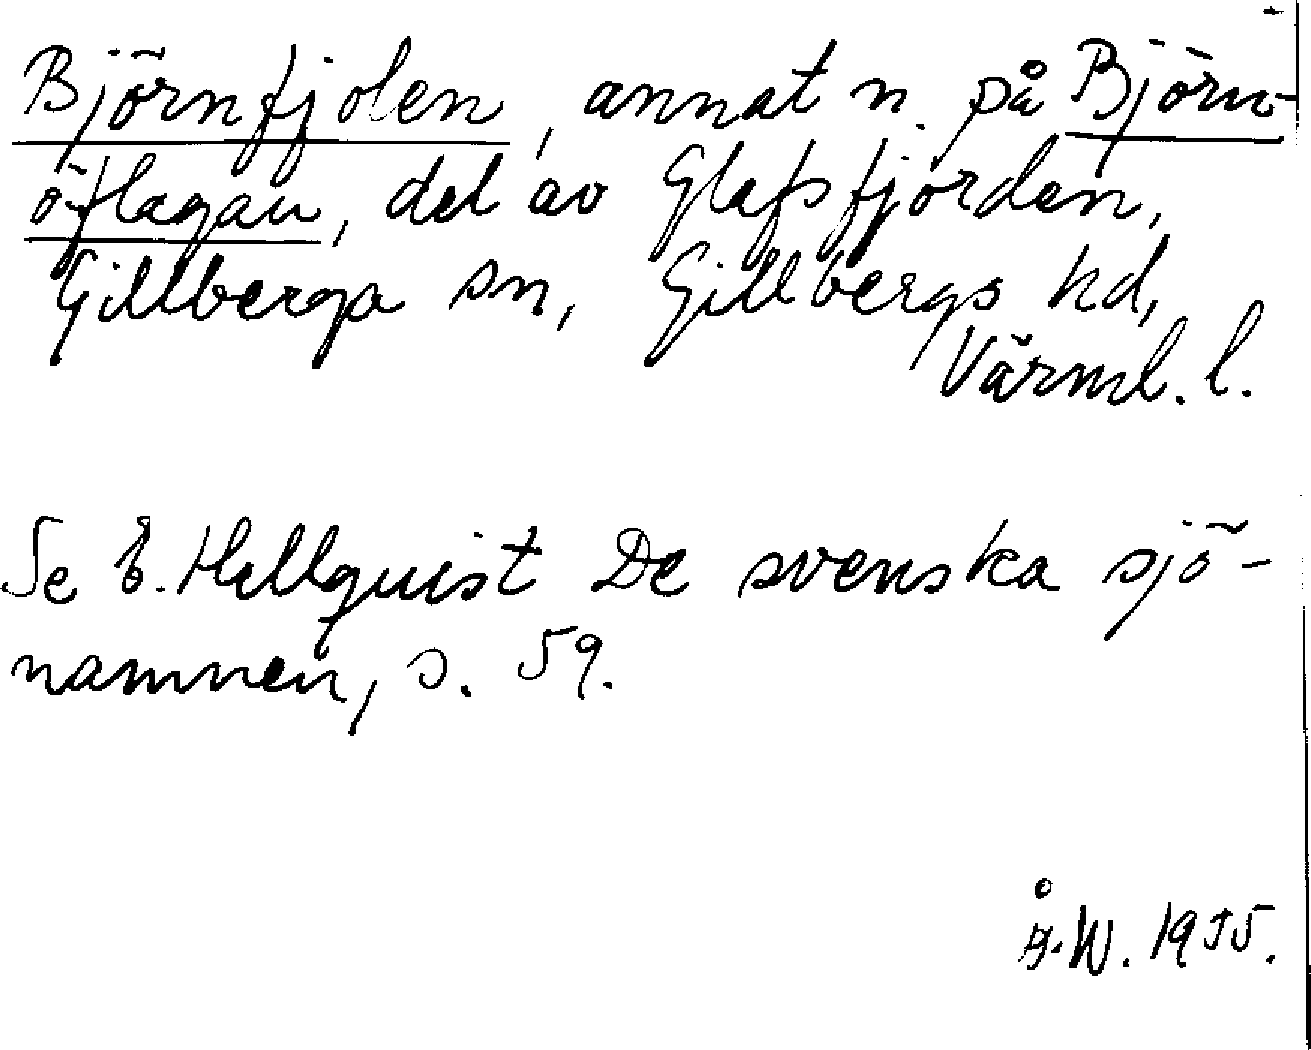 Björnfjolen, annat n. på Björn-
öflagan, del av Glafsfjorden,
Gillberga sn, Gillbergs hd,
Värml. l.
Se E. Hellquist De svenska sjö-
namnen, s. 59.
Å.W. 1955.